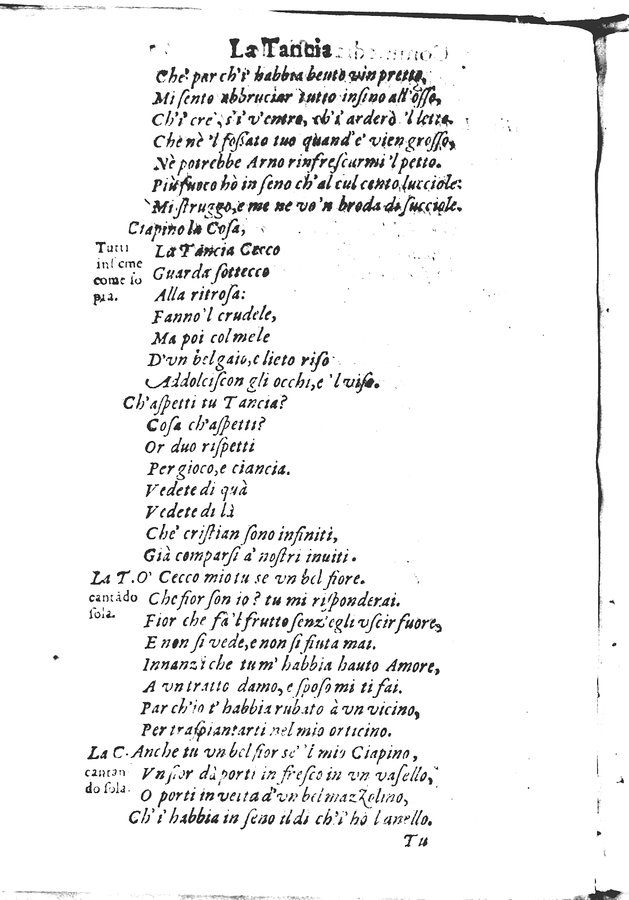 La Tancia
Che' par ch'i' habbia beuto vin pretto,
Mi sento abbruciar tutto insino all'osso,
Ch'i' cre', s'i' v'entro, ch'i' arderò 'l letto.
Che nè 'l fossato tuo quand'e' vien grosso,
Nè potrebbe Arno rinfrescarmi 'l petto.
Più fuoco hò in seno ch'al cul cento lucciole:
Mi struggo, e me ne vo'n broda di succiole.
Ciapino la Cosa,
Tutti insieme come sopra.
La Tancia Cecco
Guarda sottecco
Alla ritrosa:
Fanno'l crudele,
Ma poi col mele
D'vn bel gaio, e lieto riso
Addolciscon gli occhi, e 'l viso.
Ch'aspetti tu Tancia?
Cosa ch'aspetti?
Or duo rispetti
Per gioco, e ciancia.
Vedete di quà
Vedete di là
Che' cristian sono infiniti,
Già comparsi a' nostri inuiti.
La T. O' Cecco mio tu se vn bel fiore.
cantādo sola.
Che fior son io? tu mi risponderai.
Fior che fà'l frutto senz'egli vscir fuore,
E non si vede, e non si fiuta mai.
Innanzi che tu m' habbia hauto Amore,
A vn tratto damo, e sposo mi ti fai.
Par ch'io t' habbia rubato à vn vicino,
Per traspiantarti nel mio orticino.
La C. Anche tu vn bel fior se' 'l mio Ciapino,
cantando sola.
Vn fior dà porti in fresco in vn vasello,
O porti in vetta d'vn bel mazzolino,
Ch'i' habbia in seno il dì ch'i' hò l'anello.
Tu